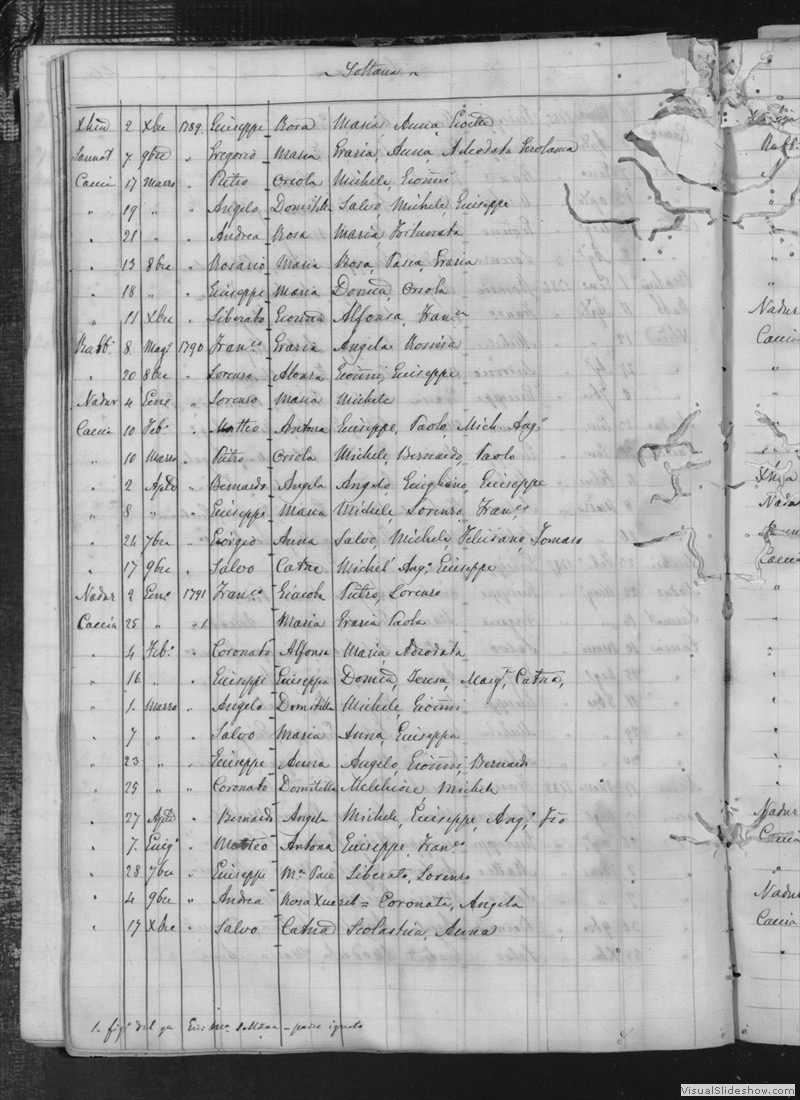 ~ Sottana ~
Xhin 2 Xbre 1789 Giuseppe Rosa Maria Anna
Sannat 7 9bre " Gregorio Maria Grazia, Anna, Adeodata
Caccia 17 Marzo " Pietro Orsola Michele, Gioñni
" 19 " " Angelo Domitilla Salvo, Michele, Giuseppe
" 21 " " Andrea Rosa Maria Fortunata
" 13 8bre " Rosario Maria Rosa, Pasca, Grazia
" 18 " " Giuseppe Maria Domca, Orsola
" 11 Xbre " Liberato Gioñna Alfonsa, Franca
Rabb. 8 Mago 1790 Franco Grazia Angela Rosaria
" 20 8bre " Lorenzo Aloisa Gioñni, Giuseppe
Nadur 4 Gene " Lorenzo Maria Michele
Caccia 10 Febo " Matteo Antona Giuseppe, Paolo, Mich. Ango
" 10 Marzo " Pietro Orsola Michele, Bernardo, Paolo
" 2 Aple " Bernardo Angela Angelo, Guiglimo, Giuseppe
" 8 " " Giuseppe Maria Michele, Lorenzo, Franco
" 24 7bre " Giorgio Anna Salvo, Michele, Feliciano, Tomaso
" 17 9bre " Salvo Catne Michel' Ango Giuseppe
Nadur 2 Gene 1791 Franco Giacoba Pietro, Lorenzo
Caccia 25 " " 1. Maria Grazia Paola
" 4 Febo " Coronato Alfonsa Maria, Adeodata
" 16 " " Giuseppe Giuseppa Domca, Teresa, Margt, Catna,
" 1. Marzo " Angelo Domitilla Michele, Gioñni
" 7 " " Salvo Maria Anna, Giuseppa
" 23 " " Giuseppe Anna Angelo, Gioñni, Bernardo
" 25 " " Coronato Domitilla Melchiore Michele
" 27 Aple " Bernardo Angela Michele, Giuseppe, Ango,
" 7. Giugo " Matteo Antona Giuseppe, Franco
" 28 7bre " Giuseppe Ma Pace Liberato, Lorenzo
" 4 9bre " Andrea Rosa Xuereb = Coronata, Angela
" 17 Xbre " Salvo Catna Scolastica, Anna
1. figo del qu Ma - padre ignoto
Nadur
Caccia
Nadur
Caccia
Nadur
Caccia
Nadur
Caccia
VisualSlideshow.com